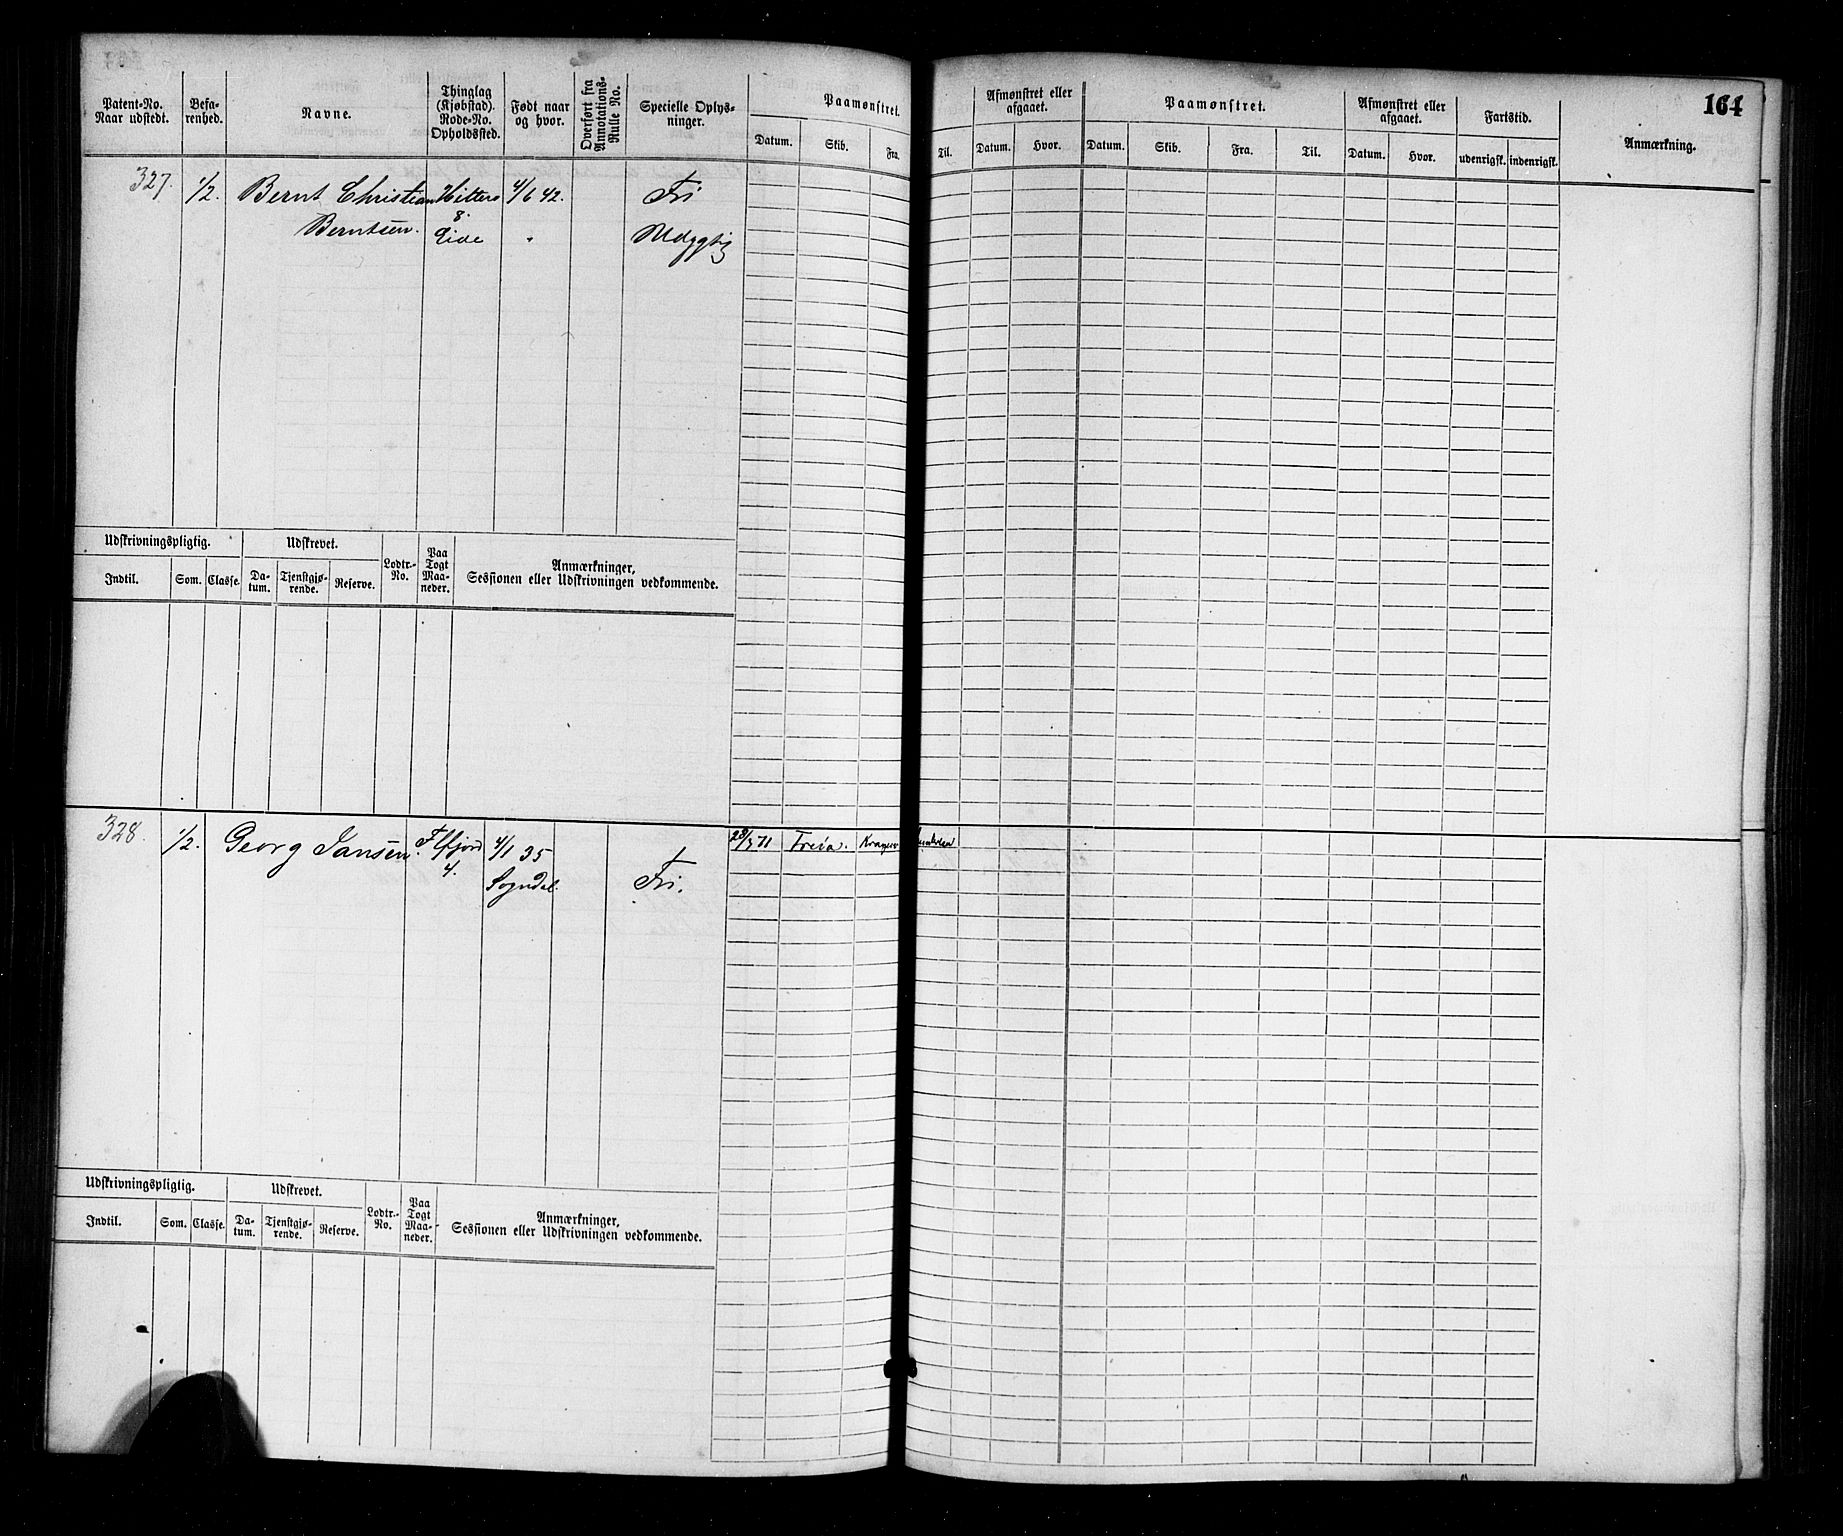 164
Patent-No. Naar udstedt.
Befa-renhed.
Navne.
Thinglag (Kjøbstad). Rode-No. Opholdssted.
Født naar og hvor.
Overført fra Annotations-Rulle No.
Specielle Oplys-ninger.
Paamønstret.
Datum. Skib. Fra. Til.
Afmønstret eller afgaaet.
Datum. Hvor.
Paamønstret.
Datum. Skib. Fra. Til.
Afmønstret eller afgaaet.
Datum. Hvor.
Fartstid.
udenrigsk. indenrigsk.
Anmærkning.
327. 1/2. Bernt Christian Hitterø 4/6 42. Fri
8.
Berntsen. Eide " Udygtig
Udskrivningspligtig. Udskrevet. Lodtr.-No. Paa Togt Maa-neder. Anmærkninger, Sessionen eller Udskrivningen vedkommende.
Indtil. Som. Classe. Da-tum. Tjenstgjø-rende. Reserve.
328. 1/2. Georg Jansen. Flfjord 4/1 35 Fri. 28/3 71 Freia. Kragerø
4. Sogndal.
Udskrivningspligtig. Udskrevet. Lodtr.-No. Paa Togt Maa-neder. Anmærkninger, Sessionen eller Udskrivningen vedkommende.
Indtil. Som. Classe. Da-tum. Tjenstgjø-rende. Reserve.